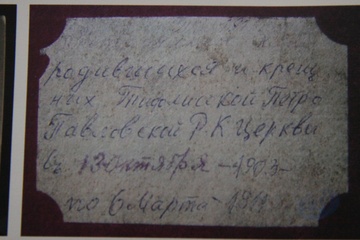 родившихся и креще
ных Тифлисской Петро
Павловской Р. К. Церкви
съ 13 Октября - 1903 -
по 6 Марта - 1911